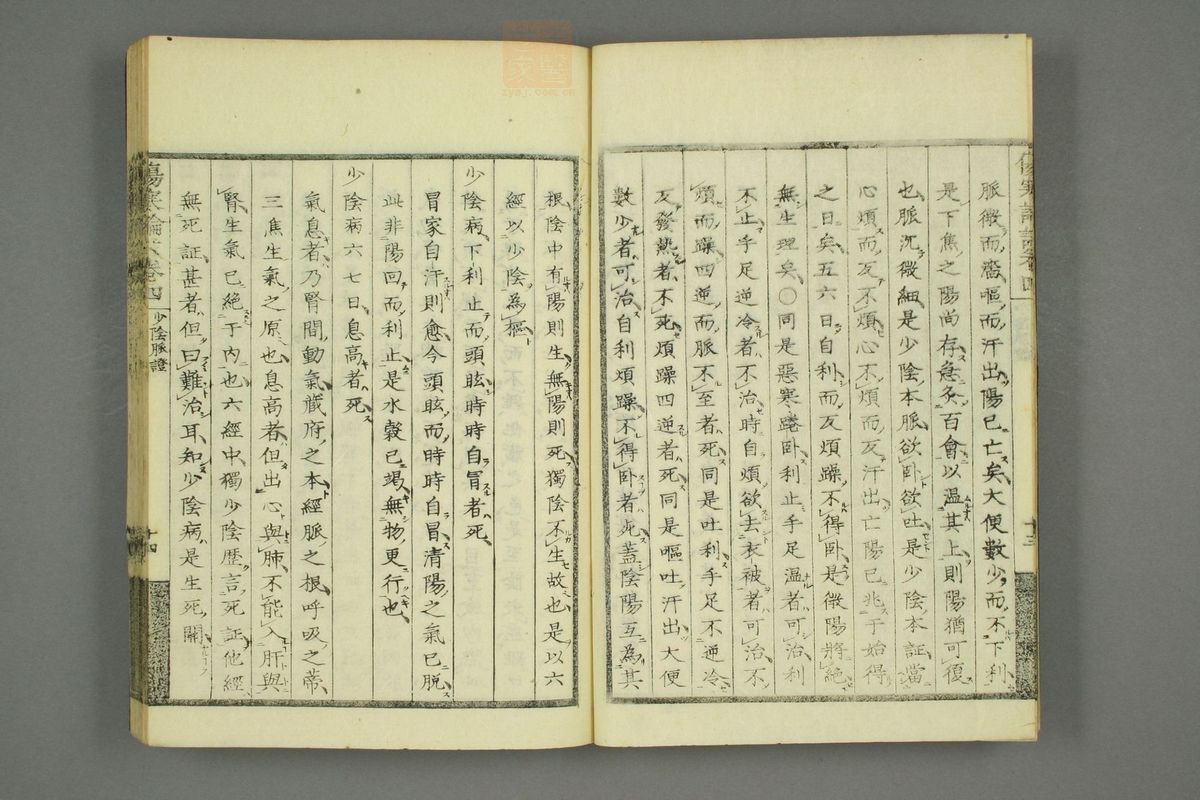 脈微而嘔而汗出陽已亡矣大便數少而不下利
是下焦之陽尚存急灸百會以温其上則陽猶可復
也脈沉微細是少陰本脈欲臥欲吐是少陰本証當
心煩而反不煩心不煩而反汗出亡陽已兆于始得
之日矣五六日自利而反煩躁不得臥是微陽將絕
無生理矣〇同是惡寒踡卧利止手足温者可治利
不止手足逆冷者不治時自煩欲去衣被者可治不
煩而躁四逆而脈不至者死同是吐利手足不逆冷
反發熱者不死煩躁四逆者死同是嘔吐汗出大便
數少者可治自利煩躁不得臥者死蓋陰陽互為其
十三
根陰中有陽則生無陽則死獨陰不生故也是以六
經以少陰為樞
少陰病下利止而頭眩時時自冒者死
冒家自汗則愈今頭眩而時時自冒清陽之氣已脫
此非陽回而利止是水穀已竭無物更行也
少陰病六七日息高者死
氣息者乃腎間動氣藏府之本經脈之根呼吸之蒂
三焦生氣之原也息高者但出心與肺不能入肝與
腎生氣已絕于内也六經中獨少陰歷言死証他經
無死証甚者但曰難治耳知少陰病是生死關
卷四
少陰脈證
十四
zysj.com.cn